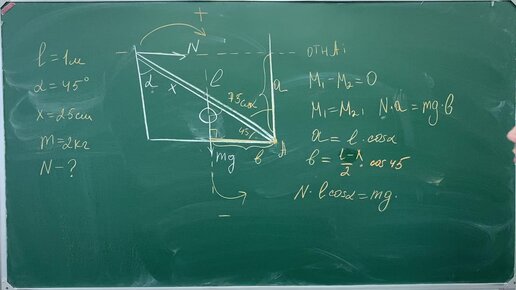 l = 1м
α = 45°
x = 25cm
m = 2кг
N - ?
+
N
α
x
l
75cm
a
45°
A
mg
b
-
ОТН A:
M₁ - M₂ = 0
M₁ = M₂, N·a = mg·b
a = l · cosα
b = · cos 45
N · l cosα = mg.